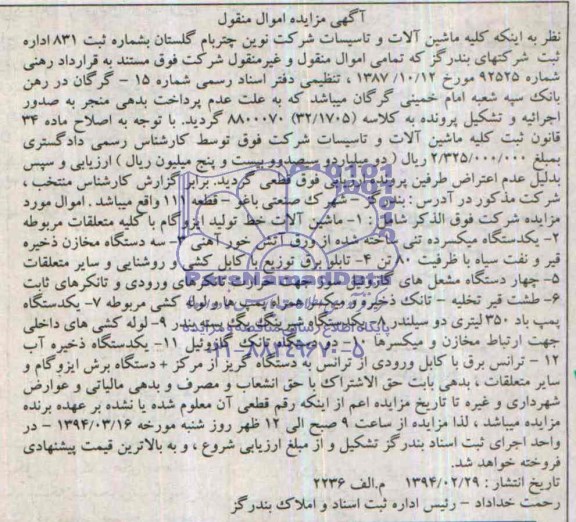 آگهی مزایده اموال منقول
نظر به اینکه کلیه ماشین آلات و تاسیسات شرکت نوین چتربام گلستان بشماره ثبت ۸۳۱ اداره
ثبت شرکتهای بندرگز که تمامی اموال منقول و غیرمنقول شرکت فوق مستند به قرارداد رهنی
شماره ۹۲۵۲۵ مورخ ۱۳۸۷/۱۰/۱۲ ، تنظیمی دفتر اسناد رسمی شماره ۱۵ - گرگان در رهن
بانک سپه شعبه امام خمینی گرگان میباشد که به علت عدم پرداخت بدهی منجر به صدور
اجرائیه و تشکیل پرونده به کلاسه (۳۲/۱۷۰۵) ۸۸۰۰۰۷۰ گردید. با توجه به اصلاح ماده ۳۴
قانون ثبت کلیه ماشین آلات و تاسیسات شرکت فوق توسط کارشناس رسمی دادگستری
بمبلغ ۲/۳۲۵/۰۰۰/۰۰۰ ریال ( دو میلیاردو سیصدوبیست و پنج میلیون ریال ) ارزیابی و سپس
بدلیل عدم اعتراض طرفین پرونده ارزیابی فوق قطعی گردید. برابر گزارش کارشناس منتخب ،
شرکت مذکور در آدرس : بندرگز - شهرک صنعتی باغو - قطعه ۱۱۱ واقع میباشد . اموال مورد
مزایده شرکت فوق الذکر شامل : ۱- ماشین آلات خط تولید ایزوگام با کلیه متعلقات مربوطه
۲- یکدستگاه میکسرده تنی ساخته شده از ورق آتش خور آهنی ۳- سه دستگاه مخازن ذخیره
قیر و نفت سیاه با ظرفیت ۸۰ تن ۴- تابلو برق توزیع با کابل کشی و روشنایی و سایر متعلقات
۵- چهار دستگاه مشعل های گازوئیل سوز جهت حرارت تانکرهای ورودی و تانکرهای ثابت
۶- طشت قیر تخلیه - تانک ذخیره و میکسر همراه پمپ ها و لوله کشی مربوطه ۷- یکدستگاه
پمپ باد ۳۵۰ لیتری دو سیلندر ۸- یکدستگاه شیرینگ پگ سه سیلندر ۹- لوله کشی های داخلی
جهت ارتباط مخازن و میکسرها ۱۰- دو دستگاه تانک گازوئیل ۱۱- یکدستگاه ذخیره آب
۱۲ - ترانس برق با کابل ورودی از ترانس به دستگاه گریز از مرکز + دستگاه برش ایزوگام و
سایر متعلقات ، بدهی بابت حق الاشتراک یا حق انشعاب و مصرف و بدهی مالیاتی و عوارض
شهرداری و غیره تا تاریخ مزایده اعم از اینکه رقم قطعی آن معلوم شده یا نشده بر عهده برنده
مزایده میباشد ، لذا مزایده از ساعت ۹ صبح الی ۱۲ ظهر روز شنبه مورخه ۱۳۹۴/۰۳/۱۶ - در
واحد اجرای ثبت اسناد بندرگز تشکیل و از مبلغ ارزیابی شروع ، و به بالاترین قیمت پیشنهادی
فروخته خواهد شد.
تاریخ انتشار : ۱۳۹۴/۰۲/۲۹ م.الف ۲۲۳۶
رحمت خداداد - رئیس اداره ثبت اسناد و املاک بندرگز
ParsNamadData
پایگاه اطلاع رسانی مناقصه و مزایده
۰۲۱-۸۸۳۴۹۶۷۰-۵